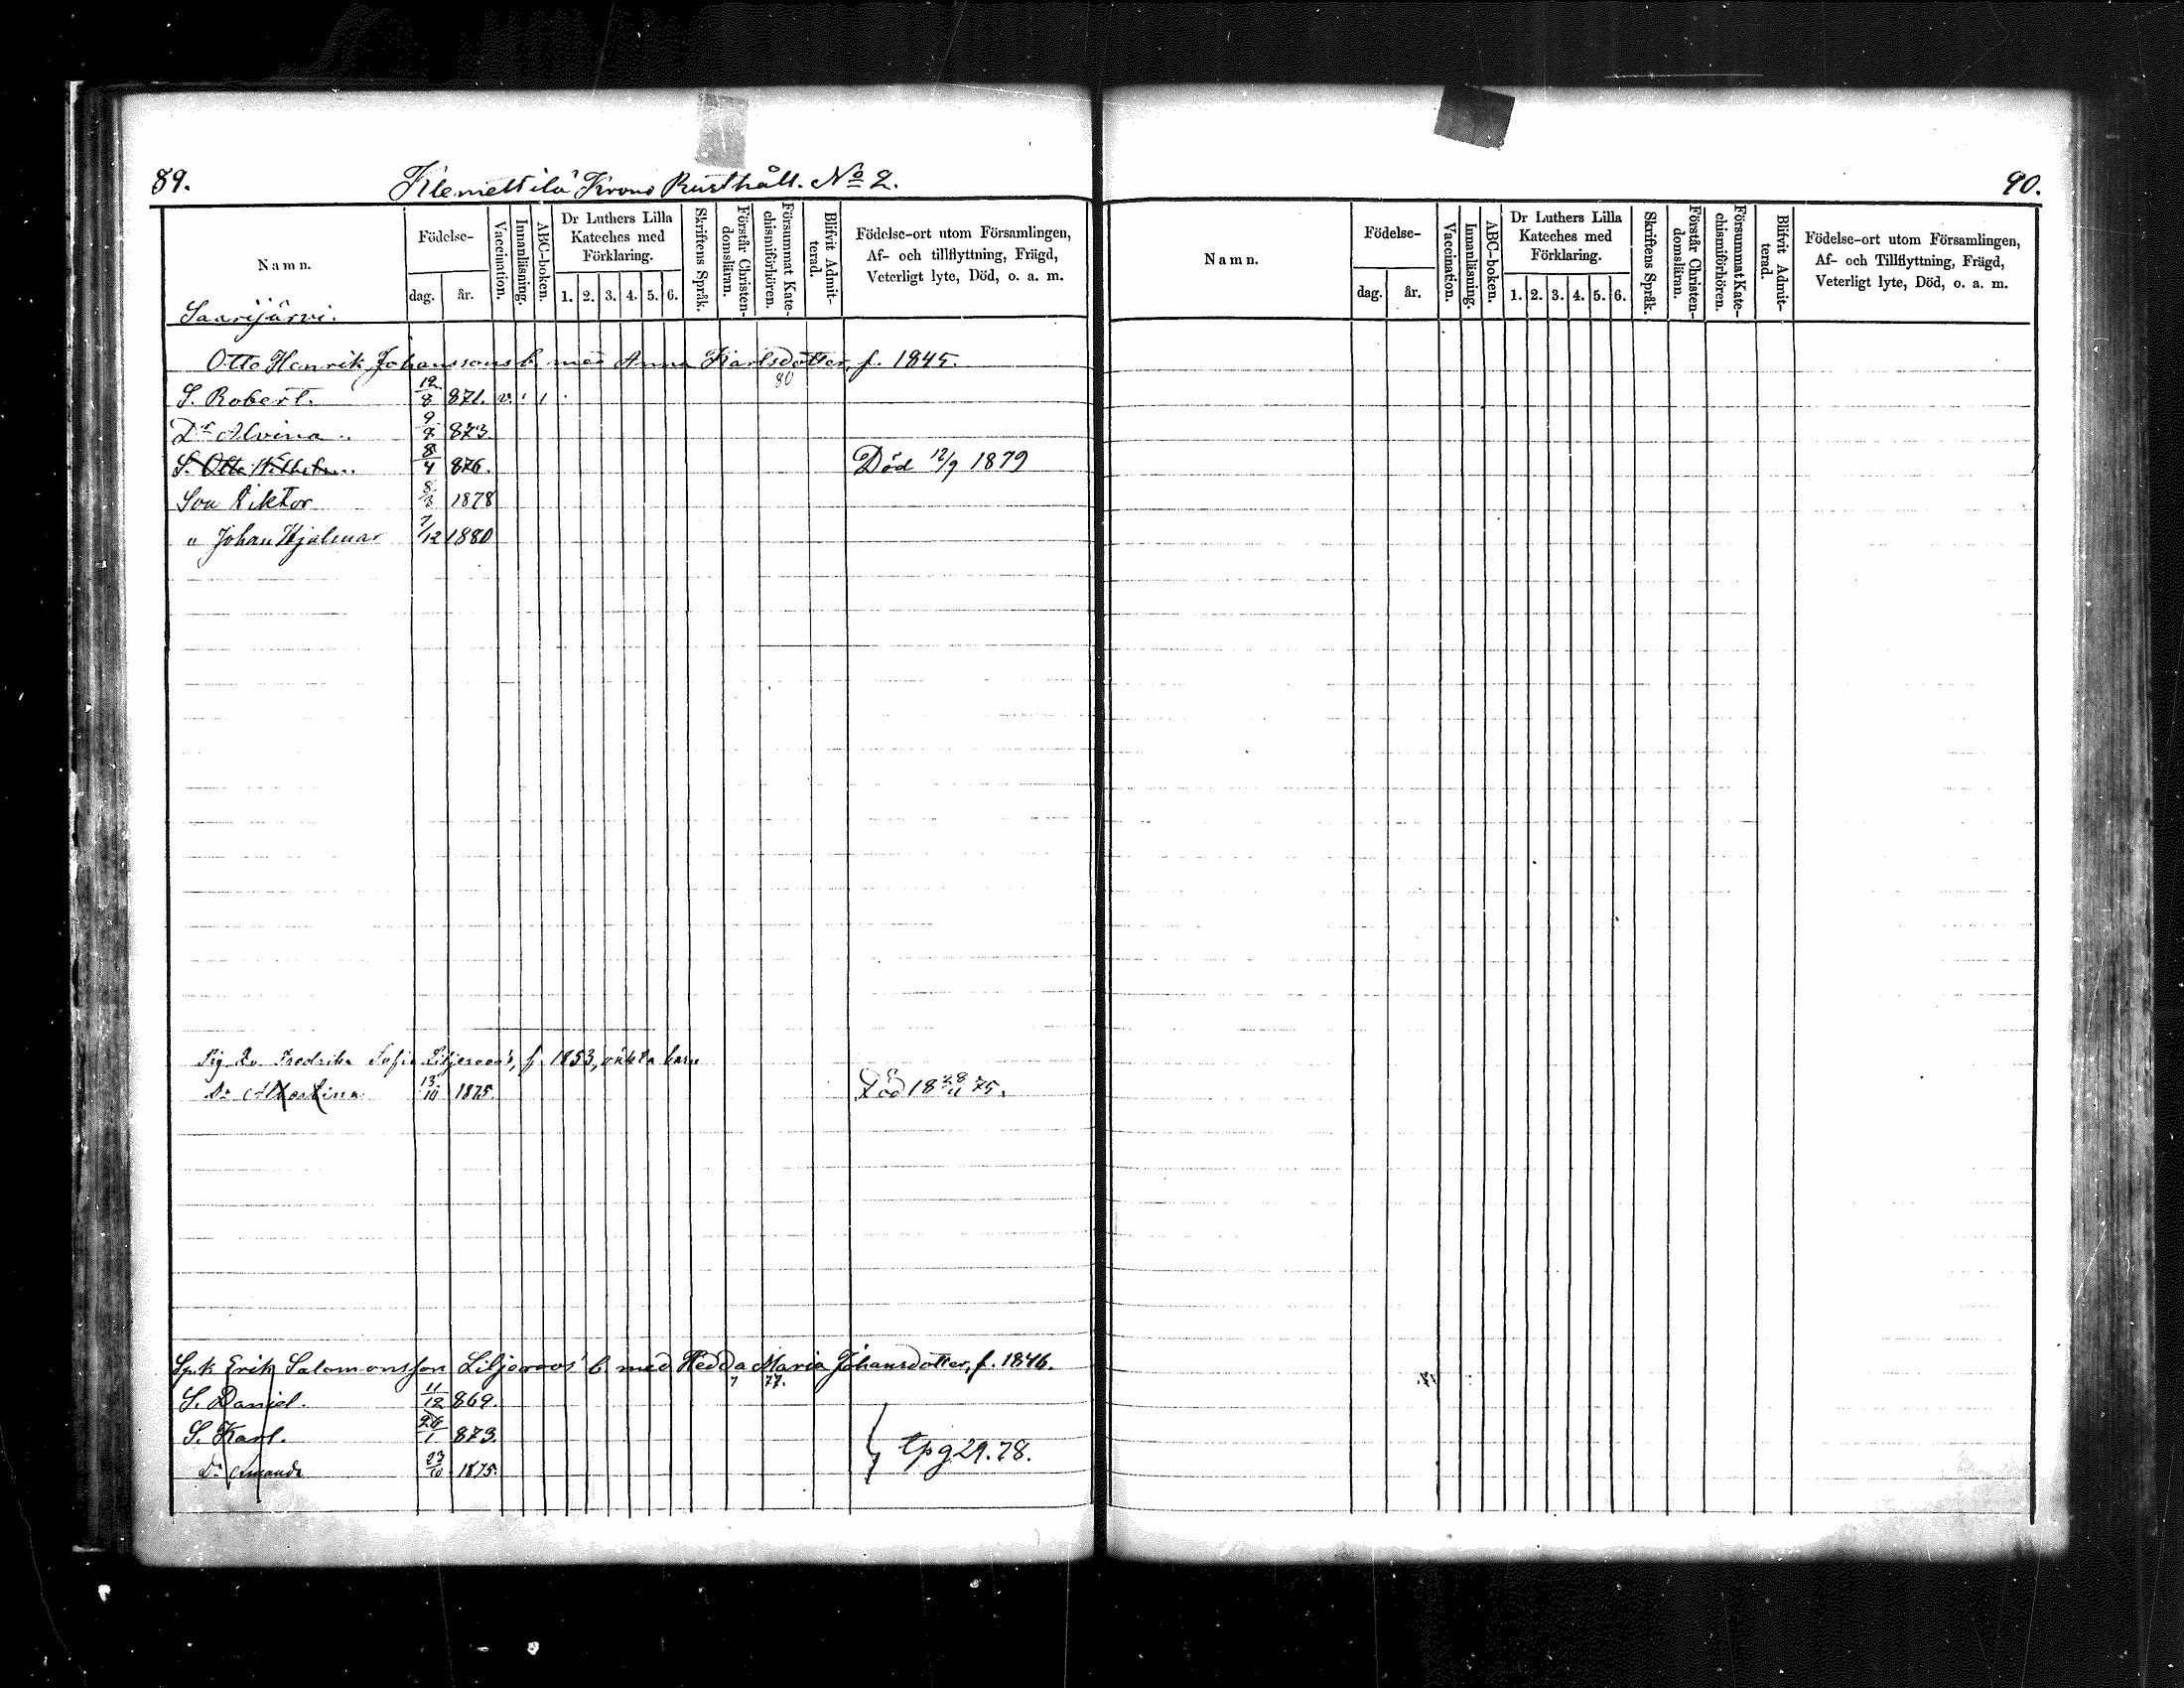 89.
Klemettilä Krono Rusthåll. No 2.
Namn.
Födelse-
dag. år.
Vaccination.
Innanläsning.
ABC-boken.
Dr Luthers Lilla Kateches med Förklaring.
1. 2. 3. 4. 5. 6.
Skriftens Språk.
Förstår Christendomsläran.
Försummat Katechismiförhören.
Blifvit Admitterad.
Födelse-ort utom Församlingen, Af- och tillflyttning, Frägd, Veterligt lyte, Död, o. a. m.
Saarijärvi.
Otto Henrik Johanssons b. med Anna Karlsdotter, f. 1845.
80
S. Robert. 12/8 871. v. ' ,
Dr Alvina 9/7 873.
S. Otto Wilhelm. 8/4 876. Död 12/9 1879
Son Viktor 8/3 1878
" Johan Hjalmar 7/12 1880
Pig. Fredrika Sofia Liljeroos', f. 1853, oäkta barn
Dr Albertina 13/10 1875. Död 18 28/11 75.
Sp.k Erik Salomonsson Liljeroos' b. med Hedda Maria Johansdotter, f. 1846.
77.
S. Daniel. 11/12 869.
S. Karl. 26/1 873.
Dr Amanda 23/10 1875.
tpg 29. 78.
90.
Namn.
Födelse-
dag. år.
Vaccination.
Innanläsning.
ABC-boken.
Dr Luthers Lilla Kateches med Förklaring.
1. 2. 3. 4. 5. 6.
Skriftens Språk.
Förstår Christendomsläran.
Försummat Katechismiförhören.
Blifvit Admitterad.
Födelse-ort utom Församlingen, Af- och Tillflyttning, Frägd, Veterligt lyte, Död, o. a. m.